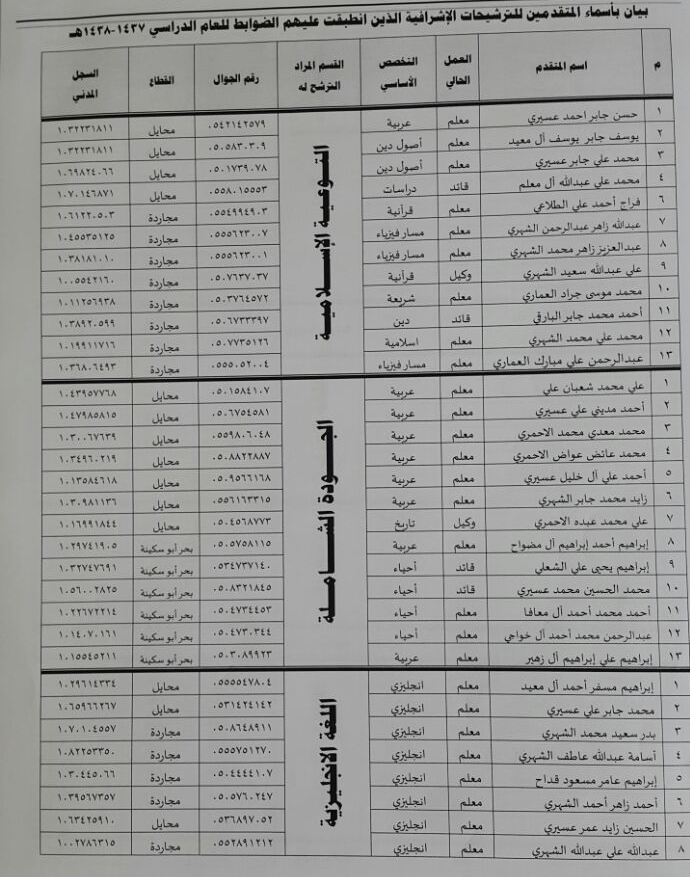 بيان بأسماء المتقدمين للترشيحات الإشرافية الذين انطبقت عليهم الضوابط للعام الدراسي ١٤٣٧-١٤٣٨هـ
م اسم المتقدم العمل الحالي التخصص الأساسي القسم المراد الترشح له رقم الجوال القطاع السجل المدني
التوعية الإسلامية
١ حسن جابر احمد عسيري معلم عربية ٠٥٤٢١٤٢٥٧٩ محايل ١٠٣٢٢٣١٨١١
٢ يوسف جابر يوسف أل معيد معلم أصول دين ٠٥٠٥٨٣٠٣٠٩ محايل ١٠٣٢٢٣١٨١١
٣ محمد علي جابر عسيري معلم أصول دين ٠٥٠١٧٣٩٠٧٨ محايل ١٠٦٩٨٢٤٠٦٦
٤ محمد علي عبدالله أل معلم قائد دراسات ٠٥٥٨٠١٥٥٥٣ محايل ١٠٧٠١٤٦٨٧١
٦ فراج أحمد علي الطلاعي معلم قرآنية ٠٥٥٤٩٩٤٩٠٣ مجاردة ١٠٦١٢٢٠٥٠٣
٧ عبدالله زاهر عبدالرحمن الشهري معلم مسار فيزياء ٠٥٥٥٦٢٣٠٠٧ مجاردة ١٠٤٥٥٣٥١٢٥
٨ عبدالعزيز زاهر محمد الشهري معلم مسار فيزياء ٠٥٥٥٦٢٣٠٠١ مجاردة ١٠٣٨١٨١٠١٠
٩ علي عبدالله سعيد الشهري وكيل قرآنية ٠٥٠٧٦٣٧٠٣٧ مجاردة ١٠٠٥٥٤٢١٦٠
١٠ محمد موسى جراد العماري معلم شريعة ٠٥٠٣٧٦٤٥٧٢ مجاردة ١٠١١٢٥٦٩٣٨
١١ أحمد محمد جابر البارقي قائد دين ٠٥٠٦٧٣٣٣٩٧ مجاردة ١٠٣٨٩٢٠٥٩٩
١٢ محمد علي محمد الشهري معلم اسلامية ٠٥٠٧٧٣٥١٢٦ مجاردة ١٠١٩٩١١٧١٦
١٣ عبدالرحمن علي مبارك العماري معلم مسار فيزياء ٠٥٥٥٠٥٢٠٠٤ مجاردة ١٠٣٦٨٠٦٤٩٣
الجودة الشاملة
١ علي محمد شعبان علي معلم عربية ٠٥٠١٥٨٤١٠٧ محايل ١٠٤٣٩٥٧٧٦٨
٢ أحمد مديني علي عسيري معلم عربية ٠٥٠٦٧٥٤٥٨١ محايل ١٠٤٧٩٨٥٨١٥
٣ محمد معدي محمد الاحمري معلم عربية ٠٥٥٩٨٠٦٠٤٨ محايل ١٠٣٠٠٦٧٦٣٩
٤ محمد عائض عواض الاحمري معلم عربية ٠٥٠٨٨٢٢٨٨٧ محايل ١٠٣٤٩٦٠٢١٩
٥ أحمد علي أل خليل عسيري معلم عربية ٠٥٠٩٥٦٦١٦٨ محايل ١٠١٣٥٨٤٦١٨
٦ زايد محمد جابر الشهري معلم عربية ٠٥٥٦١٦٣٣١٥ محايل ١٠٣٠٩٨١١٣٦
٧ علي محمد عبده الاحمري وكيل تاريخ ٠٥٠٤٥٦٨٧٧٣ محايل ١٠١٦٩٩١٨٤٤
٨ إبراهيم أحمد إبراهيم أل مضواح معلم عربية ٠٥٠٥٧٥٨١١٥ بحر أبو سكينة ١٠٢٩٧٤١٩٠٥
٩ إبراهيم يحيى علي الشعلي قائد أحياء ٠٥٣٤٧٣٧١٤٠ بحر أبو سكينة ١٠٣٢٧٤٧٦٩١
١٠ محمد الحسين محمد عسيري قائد أحياء ٠٥٠٨٣٢١٨٤٥ بحر أبو سكينة ١٠٥٦٠٠٢٨٢٥
١١ أحمد محمد أحمد أل معافا معلم أحياء ٠٥٠٤٧٣٤٤٥٣ بحر أبو سكينة ١٠٢٢٦٧٢٢١٤
١٢ عبدالرحمن محمد أحمد أل خواجي معلم أحياء ٠٥٠٤٧٣٠٣٤٤ بحر أبو سكينة ١٠١٤٠٧٠١٦١
١٣ إبراهيم علي إبراهيم أل زهير معلم عربية ٠٥٠٣٠٨٩٩٢٣ بحر أبو سكينة ١٠١٥٥٤٥٢١١
اللغة الانجليزية
١ إبراهيم مسفر أحمد أل معيد معلم انجليزي ٠٥٥٥٥٤٧٨٠٤ محايل ١٠٢٩٦١٤٣٣٤
٢ محمد جابر علي عسيري معلم انجليزي ٠٥٣١٤٢٤١٤٢ محايل ١٠٦٥٩٦٦٢٦٧
٣ بدر سعيد محمد الشهري معلم انجليزي ٠٥٠٨٦٤٨٩١١ مجاردة ١٠٧٠١٠٤٥٥٧
٤ أسامة عبدالله عاطف الشهري معلم انجليزي ٠٥٥٥٧٥١٢٧٠ مجاردة ١٠٨٢٢٥٣٣٥٠
٥ إبراهيم عامر مسعود قداح معلم انجليزي ٠٥٠٤٤٤٤١٠٧ مجاردة ١٠٣٠٤٤٥٠٦٦
٦ أحمد زاهر أحمد الشهري معلم انجليزي ٠٥٠٥٧٦٠٢٤٧ مجاردة ١٠٣٩٥٦٧٣٥٧
٧ الحسين زايد عمر عسيري معلم انجليزي ٠٥٣٦٨٩٧٠٥٢ محايل ١٠٦٣٤٢٥٩١٠
٨ عبدالله علي عبدالله الشهري معلم انجليزي ٠٥٥٢٨٩١٢١٢ مجاردة ١٠٠٢٧٨٦٣١٥